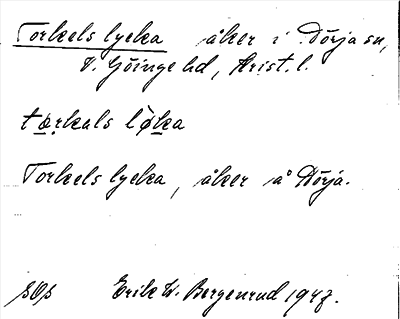 Torkels lycka åker i Dörja sn,
V. Göinge hd, Krist. l.
tọrkals løka
Torkels lycka, åker å Dörja.
SOS Erik W. Bergenrud 1947.